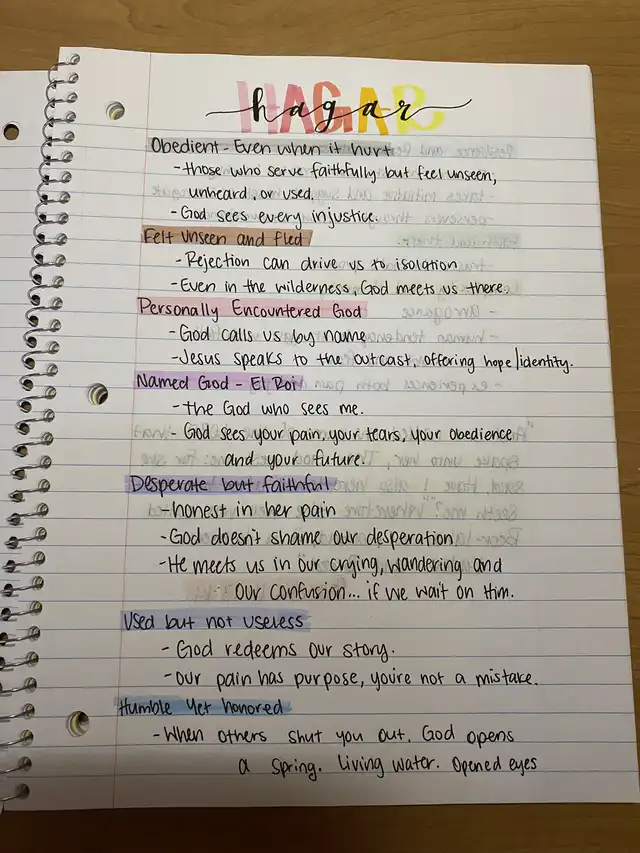 HAGAR
hagar
Obedient - Even when it hurt
- those who serve faithfully but feel unseen,
unheard, or used.
- God sees every injustice.
Felt unseen and fled
- Rejection can drive us to isolation
- Even in the wilderness, God meets us there.
Personally Encountered God
- God calls us by name
- Jesus speaks to the outcast, offering hope/identity.
Named God - El Roi
- the God who sees me.
- God sees your pain, your tears, your obedience
and your future.
Desperate but faithful
- honest in her pain
- God doesn't shame our desperation
- He meets us in our crying, wandering and
our confusion... if we wait on Him.
Used but not useless
- God redeems our story.
- Our pain has purpose, you're not a mistake.
Humble yet honored
- When others shut you out, God opens
a spring. Living water. Opened eyes